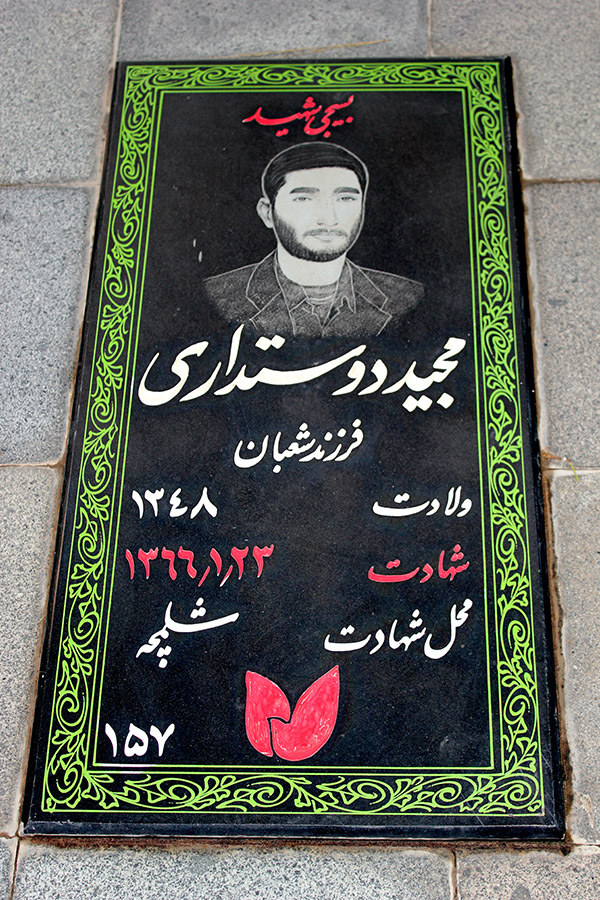 بسیجی شهید
مجید دوستداری
فرزند شعبان
ولادت ۱۳٤۸
شهادت ۱۳٦٦٫۱٫۲۳
محل شهادت شلمچه
۱۵۷